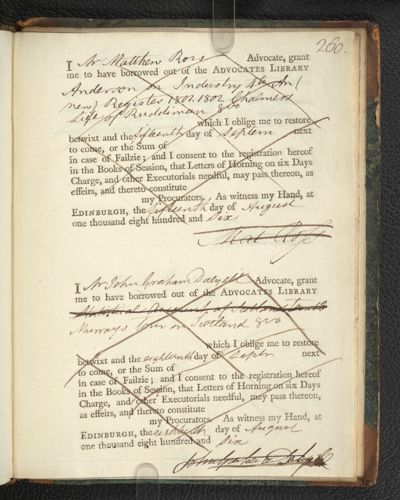 260.
I Mr Matthew Ross Advocate, grant
me to have borrowed out of the ADVOCATES LIBRARY
Anderson on Industry 4to An
new Register 1802. 1802 Chalmers
Life of Ruddiman 8vo
which I oblige me to restore
betwixt and the fifteenth day of Septem next
to come, or the Sum of
in case of Failzie; and I consent to the registration hereof
in the Books of Session, that Letters of Horning on six Days
Charge, and other Executorials needful, may pass thereon, as
effeirs, and thereto constitute
my Procurators. As witness my Hand, at
EDINBURGH, the fifteenth day of August
one thousand eight hundred and Six
Mat Ross
I Mr John Graham Dalyell Advocate, grant
me to have borrowed out of the ADVOCATES LIBRARY
Statistical Account of Scotland
Murray's Tour in Scotland 8vo
which I oblige me to restore
betwixt and the eighteenth day of Septr next
to come, or the Sum of
in case of Failzie; and I consent to the registration hereof
in the Books of Session, that Letters of Horning on six Days
Charge, and other Executorials needful, may pass thereon,
as effeirs, and thereto constitute
my Procurators. As witness my Hand, at
EDINBURGH, the eighteenth day of August
one thousand eight hundred and Six
John Graham Dalyell